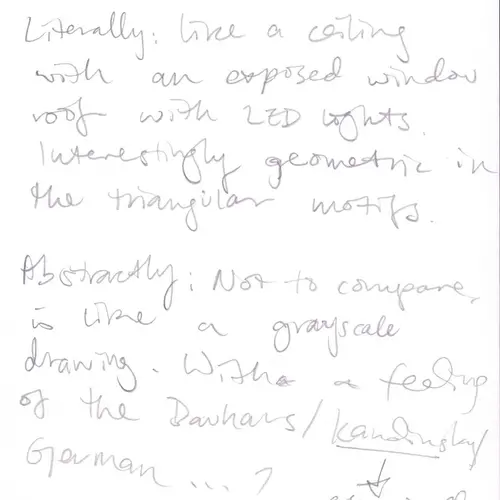 Literally: like a ceiling
with an exposed window
roof with LED lights.
Interestingly geometric in
the triangular motifs.
Abstractly: Not to compare,
is like a grayscale
drawing. With a feeling
of the Bauhaus/Kandinsky/
German ... ?